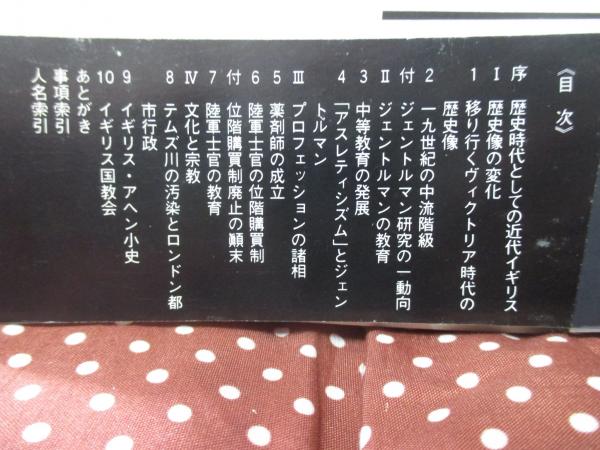 《目次》
序 歴史時代としての近代イギリス
Ⅰ 歴史像の変化
1 移り行くヴィクトリア時代の
歴史像
2 一九世紀の中流階級
付 ジェントルマン研究の一動向
Ⅱ ジェントルマンの教育
3 中等教育の発展
4 「アスレティシズム」とジェン
トルマン
Ⅲ プロフェッションの諸相
5 薬剤師の成立
6 陸軍士官の位階購買制
付 位階購買制廃止の顛末
7 陸軍士官の教育
Ⅳ 文化と宗教
8 テムズ川の汚染とロンドン都
市行政
9 イギリス・アヘン小史
10 イギリス国教会
あとがき
事項索引
人名索引